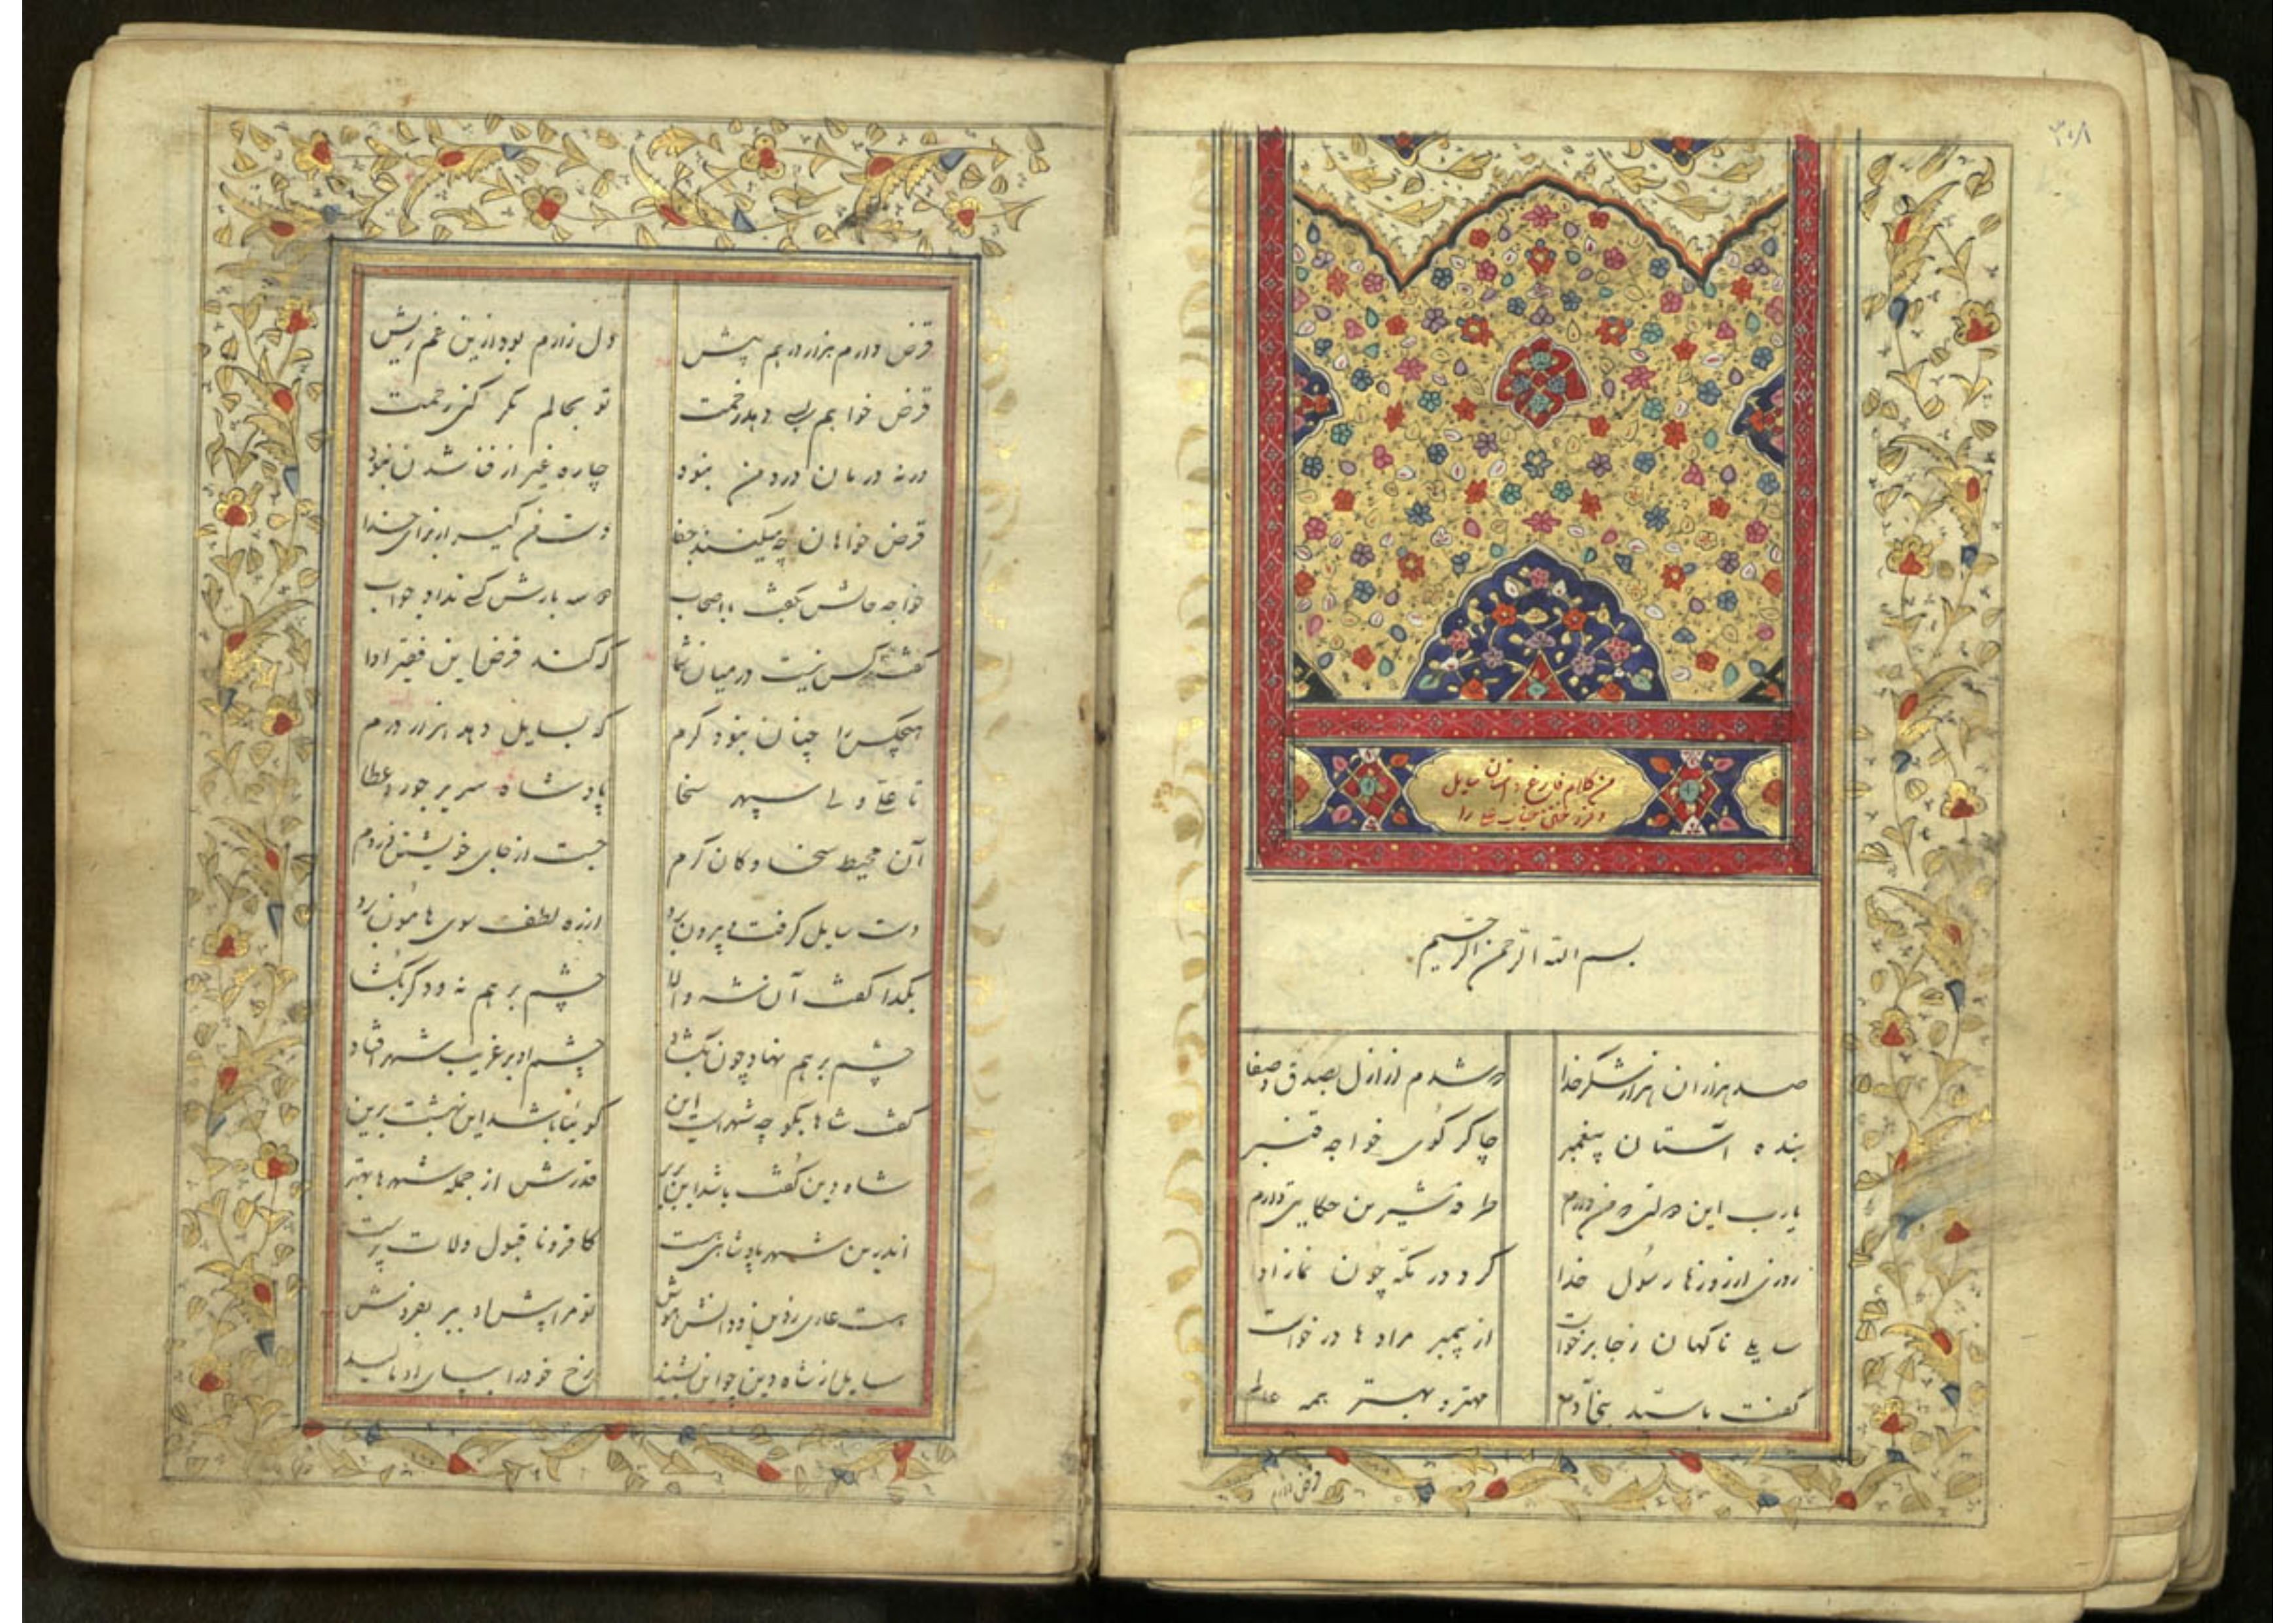 ۳۰۸
من کلام فارغ داستان سایل
و فروختن جناب علی را
بسم الله الرحمن الرحیم
صد هزاران هزار شکر خدا که شدم از ازل بصدق و صفا
بنده آستان پیغمبر چاکر کوی خواجه قنبر
یارب این دولتی که من دارم طرفه شیرین حکایتی دارم
روزی از روزها رسول خدا کرد در مکه چون نماز ادا
سایلی ناکهان ز جا برخواست از پیمبر مرادها درخواست
کفت یا سید بنی آدم مهتر و بهتر همه عالم
قرض دارم
قرض دارم هزار درهم پیش دل زارم بود ازین غم ریش
قرض خواهم نمی دهد رخصت تو بحالم مکر کنی رحمت
ورنه درمان درد من نبود چاره غیر از فنا شدن نبود
قرض خواهان چه میکنند جفا دست من کیر از برای خدا
خواجه حالش بکفت با اصحاب دو سه بارش کسی نداد جواب
کفت کس نیست در میان شما که کند قرض این فقیر ادا
هیچکس را چنان نبود کرم که بسایل دهد هزار درم
تا علی ولی سپهر سخا پادشاه سریر جود و عطا
آن محیط سخا و کان کرم جست از جای خویشتن در دم
دست سایل کرفت و بیرون برد از ره لطف سوی هامون برد
بکدا کفت آن شه والا چشم بر هم نه و دکر بکشا
چشم بر هم نهاد چون بکشاد چشم او بر غریب شهر افتاد
کفت شاها بکو چه شهرست این کوئیا باشد این بهشت برین
شاه دین کفت باشد این بربر قدرش از جمله شهرها بهتر
اندرین شهر پادشاهی هست کافر و ناقبول و لات پرست
هست عاری ز دین و دانش و هوش تو مرا پیش او ببر بفروش
سایل از شاه دین چو این بشنید رخ خود را بپای او مالید